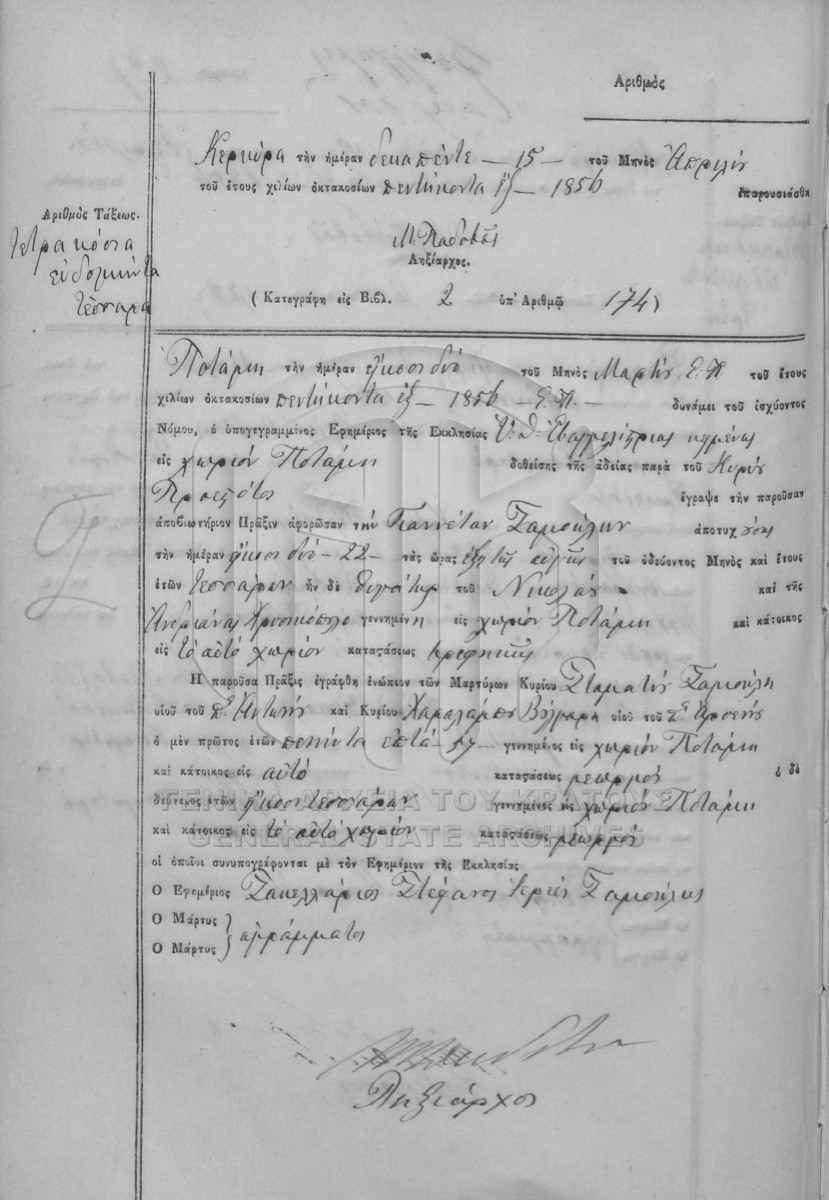 Αριθμὸς
Κερκύρα τὴν ἡμέραν δεκαπέντε — 15 — τοῦ Μηνὸς Ἀπριλίου
τοῦ ἔτους χιλίων ὀκτακοσίων πεντήκοντα ἓξ — 1856 ἐπαρουσιάσθη
Ἀριθμὸς Τάξεως.
τετρακόσια
εὐδομήντα
τέσσαρα
Μ. Παδοβᾶς
Ληξίαρχος.
( Κατεγράφη εἰς Βιβλ. 2 ὑπ' Ἀριθμῷ 174)
Ποτάμι τὴν ἡμέραν εἴκοσι δύο τοῦ Μηνὸς Μαρτίου Ε. Π. τοῦ ἔτους
χιλίων ὀκτακοσίων πεντήκοντα ἓξ — 1856 — Ε. Π. — δυνάμει τοῦ ἰσχύοντος
Νόμου, ὁ ὑπογεγραμμένος Ἐφημέριος τῆς Ἐκκλησίας Υ. Θ. Εὐαγγελίστριας κημένης
εἰς χωρίον Ποτάμι δοθείσης τῆς ἀδείας παρὰ τοῦ Κυρίου
Προεστότος ἔγραψε τὴν παροῦσαν
ἀποβιωτήριον Πρᾶξιν ἀφορῶσαν τὴν Γιαννέταν Σαμοίλην ἀποτυχοῦσης
τὴν ἡμέραν ἤκοσι δύο — 22 — τὰς ὥρας ἕξη τῆς αὐγῆς τοῦ ὁδεύοντος Μηνὸς καὶ ἔτους
ἐτῶν τεσσάρων ἦν δὲ θυγάτηρ τοῦ Νικολάου καὶ τῆς
Ἀνδριάνας Χρυσικόπουλο γεννημένη εἰς χωρίον Ποτάμι καὶ κάτοικος
εἰς τὸ αὐτὸ χωρίον καταστάσεως βρεφηκῆς
Η παροῦσα Πρᾶξις ἐγράφθη ἐνώπιον τῶν Μαρτύρων Κυρίου Σταματίου Σαμοίλη
υἱοῦ τοῦ Ἀντωνίου καὶ Κυρίου Χαραλάμπου Βούλγαρη υἱοῦ τοῦ Ἀρσενίου
ὁ μὲν πρῶτος ἐτῶν πενήντα ἑπτά — 57 — γεννημένος εἰς χωρίον Ποτάμι
καὶ κάτοικος εἰς αὐτό καταστάσεως γεωργοῦ ὁ δὲ
δεύτερος ἐτῶν ἤκοσι τεσσάρων γεννημένος εἰς χωρίον Ποτάμι
καὶ κάτοικος εἰς τὸ αὐτὸ χωρίον καταστάσεως γεωργοῦ
οἱ ὁποῖοι συνυπογράφονται μὲ τὸν Ἐφημέριον τῆς Ἐκκλησίας
Ο Ἐφημέριος Σακελλάριος Στέφανος Ἱερεὺς Σαμοίλης
Ο Μάρτυς
Ο Μάρτυς } ἀγράμματοι
Ληξίαρχος
ΓΕΝΙΚΑ ΑΡΧΕΙΑ ΤΟΥ ΚΡΑΤΟΥΣ
GENERAL STATE ARCHIVES